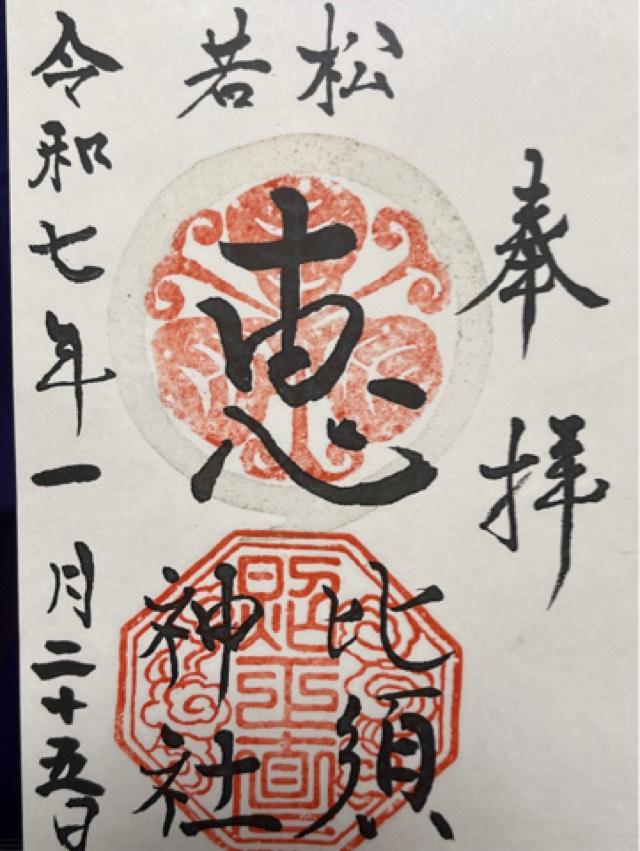 奉拝
若松
恵
比須
神社
令和七年一月二十五日